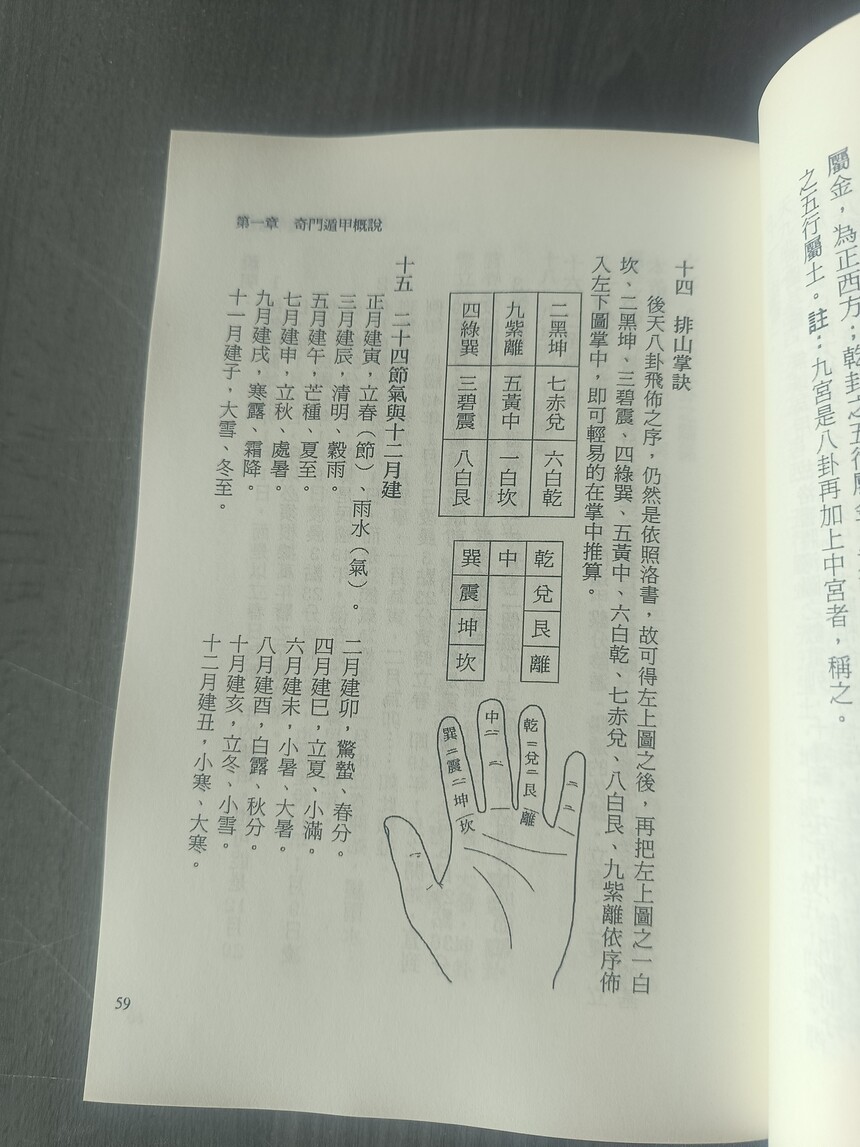 屬金，為正西方；乾卦之五行屬金
之五行屬土。註：九宮是八卦再加上中宮者，稱之。
十四　排山掌訣
後天八卦飛佈之序，仍然是依照洛書，故可得左上圖之後，再把左上圖之一白
坎、二黑坤、三碧震、四綠巽、五黃中、六白乾、七赤兌、八白艮、九紫離依序佈
入左下圖掌中，即可輕易的在掌中推算。
二黑坤 七赤兌 六白乾
九紫離 五黃中 一白坎
四綠巽 三碧震 八白艮
乾 兌 艮 離
中
巽 震 坤 坎
乾 兌 艮 離
中
巽 震 坤 坎
十五　二十四節氣與十二月建
正月建寅，立春（節）、雨水（氣）。
二月建卯，驚蟄、春分。
三月建辰，清明、穀雨。
四月建巳，立夏、小滿。
五月建午，芒種、夏至。
六月建未，小暑、大暑。
七月建申，立秋、處暑。
八月建酉，白露、秋分。
九月建戌，寒露、霜降。
十月建亥，立冬、小雪。
十一月建子，大雪、冬至。
十二月建丑，小寒、大寒。
第一章　奇門遁甲概說
59